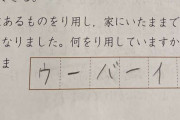 あるものをり用し、家にいたままで
なりました。何をり用していますか
ま
ウーバーイ